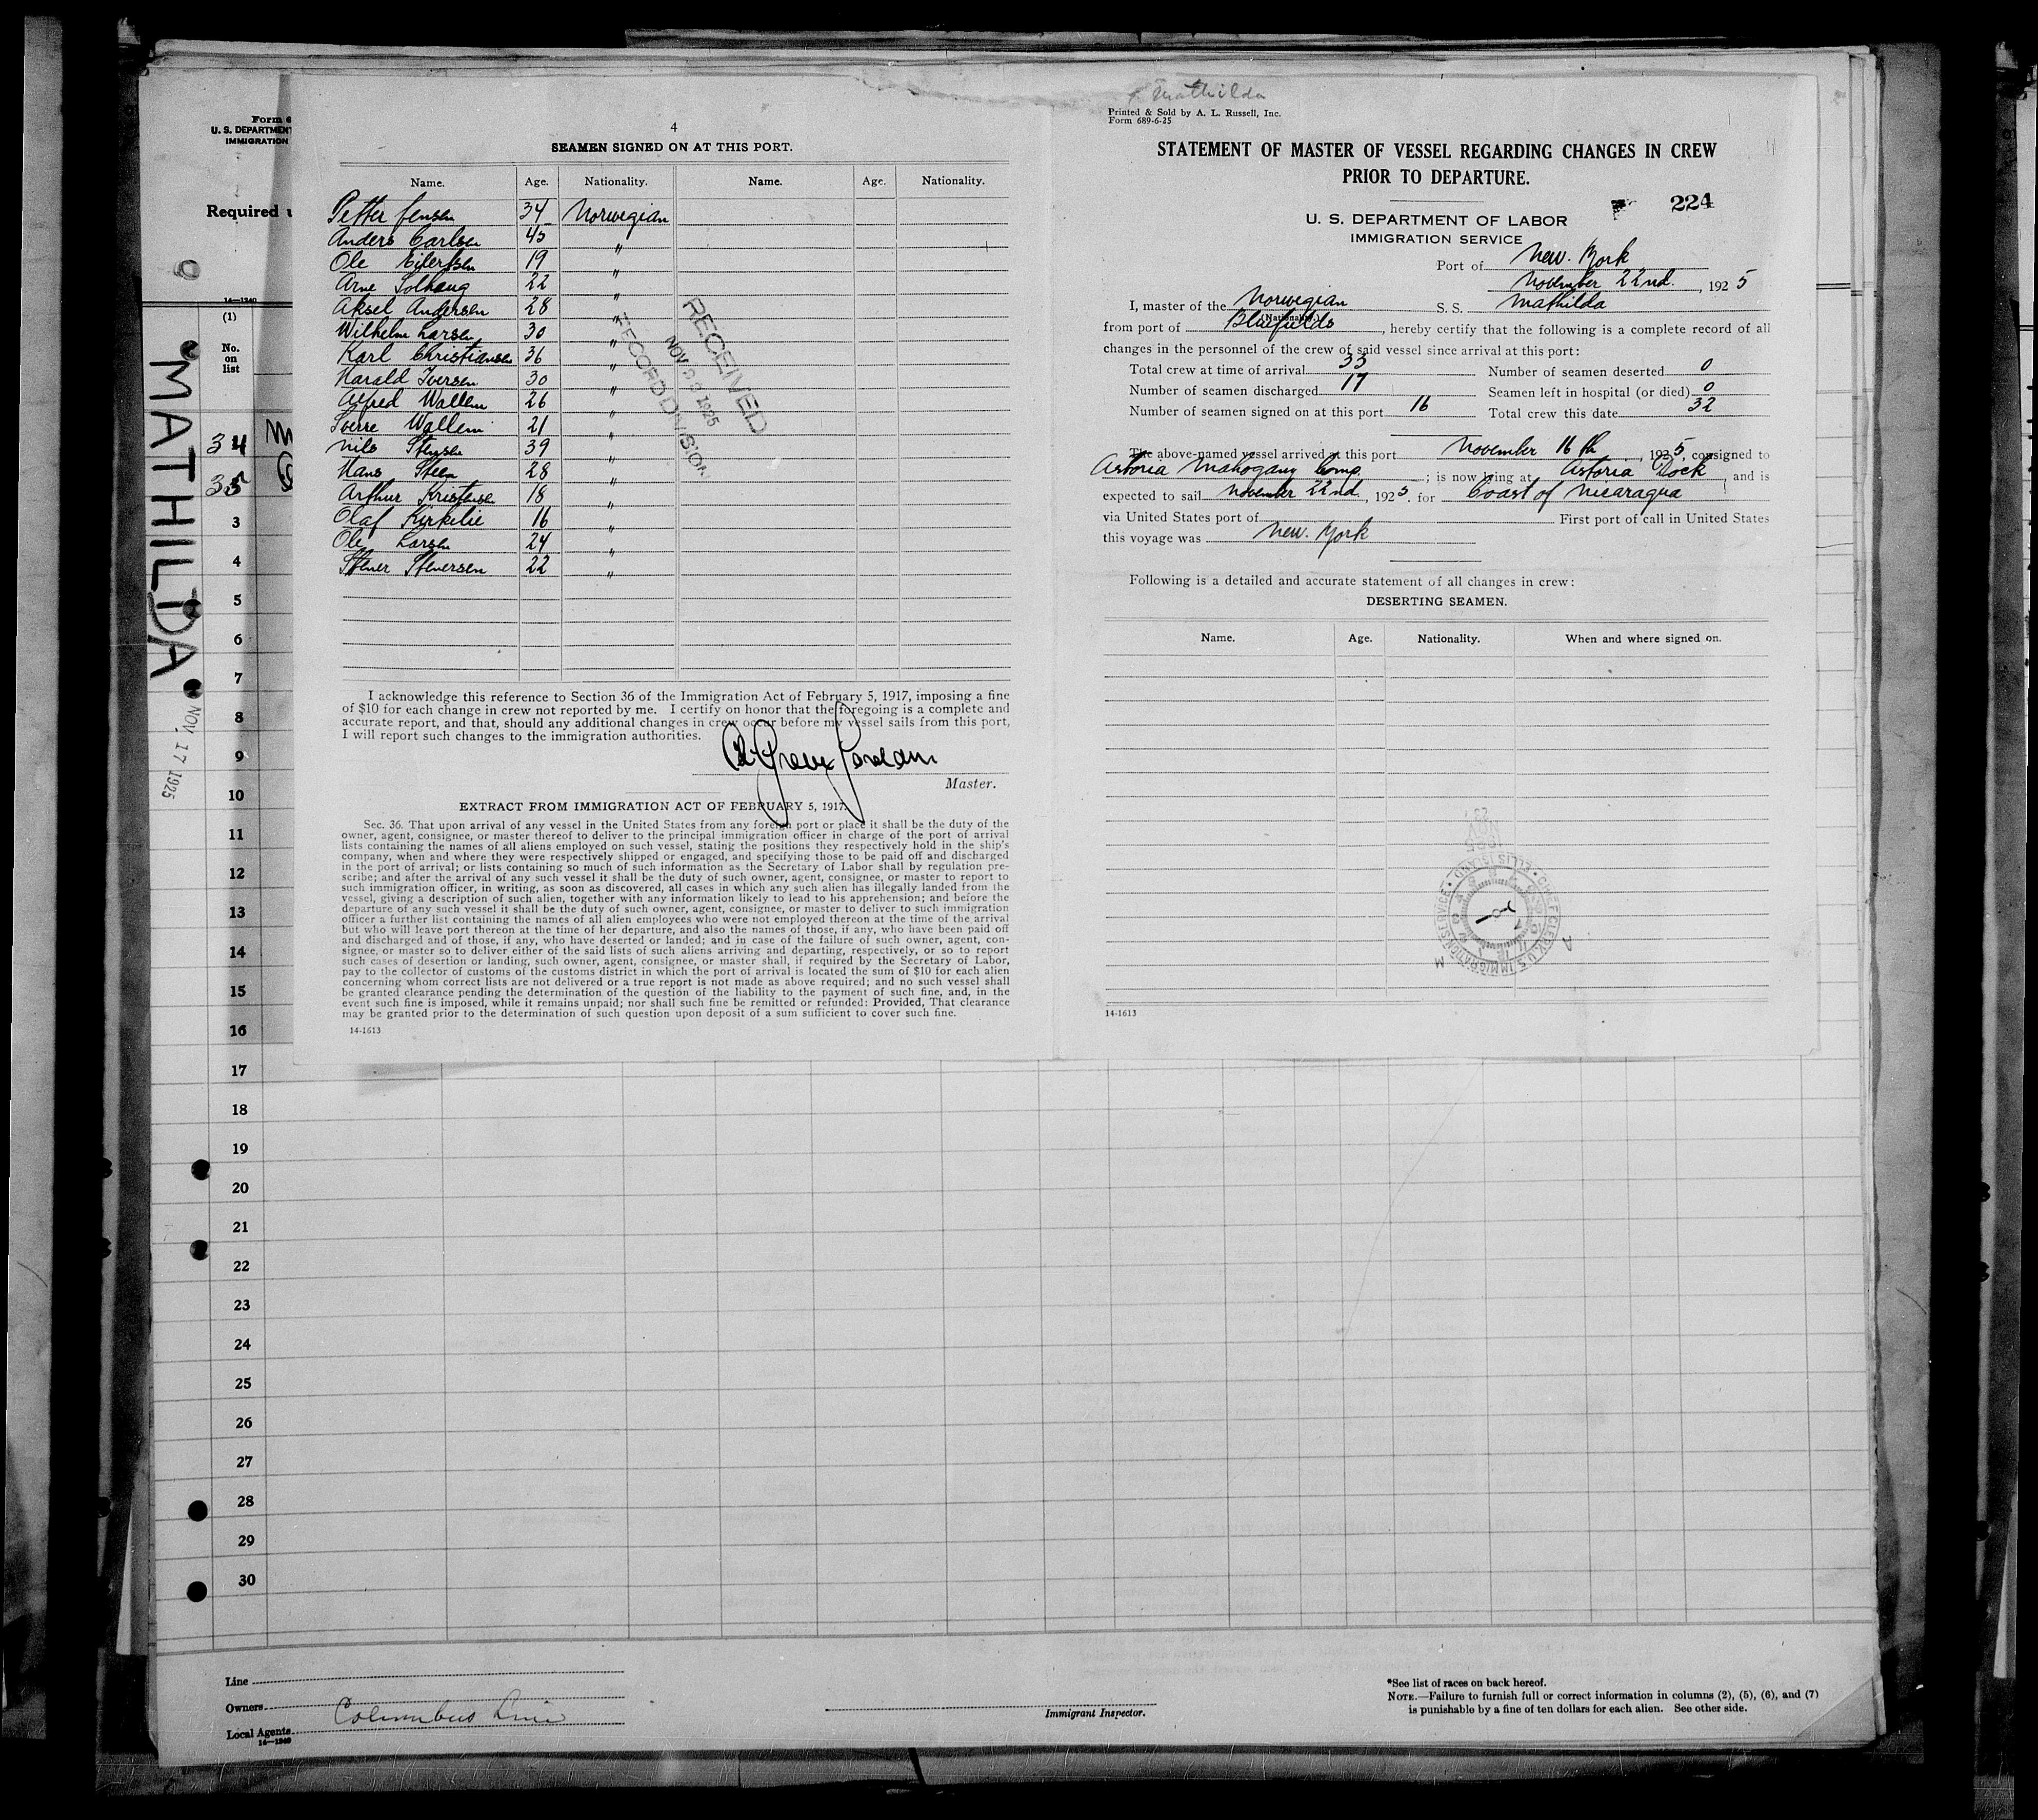 Form 6
U. S. DEPARTMENT
IMMIGRATION
Required u
14—1240
(1)
No.
on
list
34
35
3
4
5
6
7
8
9
10
11
12
13
14
15
16
17
18
19
20
21
22
23
24
25
26
27
28
29
30
MATHILDA
NOV 17 1925
4
SEAMEN SIGNED ON AT THIS PORT.
Name. Age. Nationality. Name. Age. Nationality.
Petter Jensen 34 Norwegian
Anders Carlsen 45 "
Ole Eilertsen 19 "
Arne Solhaug 22 "
Aksel Andersen 28 "
Wilhelm Larsen 30 "
Karl Christiansen 36 "
Harald Iversen 30 "
Alfred Wallem 26 "
Sverre Wallem 21 "
Nils 39 "
Hans Steen 28 "
Arthur Kristensen 18 "
Olaf Kirkelie 16 "
Ole Larsen 24 "
Stener Stenersen 22 "
RECEIVED
NOV 23 1925
RECORD DIVISION
I acknowledge this reference to Section 36 of the Immigration Act of February 5, 1917, imposing a fine
of $10 for each change in crew not reported by me. I certify on honor that the foregoing is a complete and
accurate report, and that, should any additional changes in crew occur before my vessel sails from this port,
I will report such changes to the immigration authorities.
Master.
EXTRACT FROM IMMIGRATION ACT OF FEBRUARY 5, 1917.
Sec. 36. That upon arrival of any vessel in the United States from any foreign port or place it shall be the duty of the
owner, agent, consignee, or master thereof to deliver to the principal immigration officer in charge of the port of arrival
lists containing the names of all aliens employed on such vessel, stating the positions they respectively hold in the ship's
company, when and where they were respectively shipped or engaged, and specifying those to be paid off and discharged
in the port of arrival; or lists containing so much of such information as the Secretary of Labor shall by regulation pre-
scribe; and after the arrival of any such vessel it shall be the duty of such owner, agent, consignee, or master to report to
such immigration officer, in writing, as soon as discovered, all cases in which any such alien has illegally landed from the
vessel, giving a description of such alien, together with any information likely to lead to his apprehension; and before the
departure of any such vessel it shall be the duty of such owner, agent, consignee, or master to deliver to such immigration
officer a further list containing the names of all alien employees who were not employed thereon at the time of the arrival
but who will leave port thereon at the time of her departure, and also the names of those, if any, who have been paid off
and discharged and of those, if any, who have deserted or landed; and in case of the failure of such owner, agent, con-
signee, or master so to deliver either of the said lists of such aliens arriving and departing, respectively, or so to report
such cases of desertion or landing, such owner, agent, consignee, or master shall, if required by the Secretary of Labor,
pay to the collector of customs of the customs district in which the port of arrival is located the sum of $10 for each alien
concerning whom correct lists are not delivered or a true report is not made as above required; and no such vessel shall
be granted clearance pending the determination of the question of the liability to the payment of such fine, and, in the
event such fine is imposed, while it remains unpaid; nor shall such fine be remitted or refunded: Provided, That clearance
may be granted prior to the determination of such question upon deposit of a sum sufficient to cover such fine.
14-1613
Mathilda
Printed & Sold by A. L. Russell, Inc.
Form 689-6-25
STATEMENT OF MASTER OF VESSEL REGARDING CHANGES IN CREW
PRIOR TO DEPARTURE.
224
U. S. DEPARTMENT OF LABOR
IMMIGRATION SERVICE
Port of New. York
November 22nd. , 192 5
I, master of the Norwegian S. S. Mathilda
(Nationality.)
from port of Bluefields , hereby certify that the following is a complete record of all
changes in the personnel of the crew of said vessel since arrival at this port:
Total crew at time of arrival 33 Number of seamen deserted 0
Number of seamen discharged 17 Seamen left in hospital (or died) 0
Number of seamen signed on at this port 16 Total crew this date 32
The above-named vessel arrived at this port November 16 th , 1925, consigned to
Astoria Mahogany Comp. ; is now lying at Astoria Dock , and is
expected to sail November 22nd. , 192 5. for Coast of Nicaragua
via United States port of First port of call in United States
this voyage was New. York
Following is a detailed and accurate statement of all changes in crew:
DESERTING SEAMEN.
Name. Age. Nationality. When and where signed on.
CHIEF CLERK, U.S. IMMIGRATION SERVICE • ELLIS ISLAND •
14-1613
Line
Owners
Columbus Line
Local Agents
14—1240
Immigrant Inspector.
*See list of races on back hereof.
NOTE.—Failure to furnish full or correct information in columns (2), (5), (6), and (7)
is punishable by a fine of ten dollars for each alien. See other side.